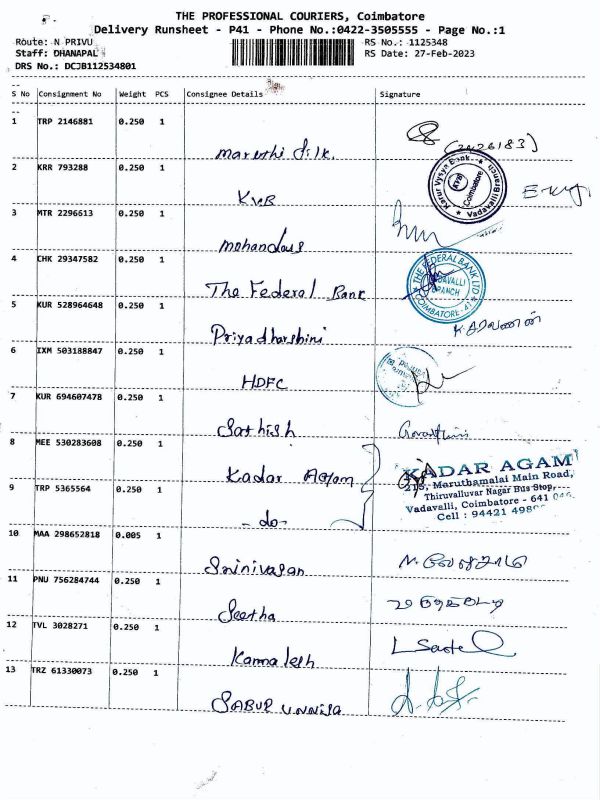 THE PROFESSIONAL COURIERS, Coimbatore
Delivery Runsheet - P41 - Phone No.:0422-3505555 - Page No.:1
Route: N PRIVU RS No.: 1125348
Staff: DHANAPAL RS Date: 27-Feb-2023
DRS No.: DCJB112534801
S No Consignment No Weight PCS Consignee Details Signature
1 TRP 2146881 0.250 1
Maruthi Silk. (2426183)
2 KRR 793288 0.250 1 Karur Vysya Bank KVB Coimbatore Vadavalli Branch
KVB
3 MTR 2296613 0.250 1
Mohandass
4 CHK 29347582 0.250 1 THE FEDERAL BANK LTD. VADAVALLI BRANCH COIMBATORE - 41
The Federal Bank
5 KUR 528964648 0.250 1
Priyadharshini
6 IXM 503188847 0.250 1
HDFC
7 KUR 694607478 0.250 1
Sathish
8 MEE 530283608 0.250 1
Kadar Agam KADAR AGAM
215, Maruthamalai Main Road,
9 TRP 5365564 0.250 1 Thiruvalluvar Nagar Bus Stop,
Vadavalli, Coimbatore - 641 041
- do - Cell : 94421 498
10 MAA 298652818 0.005 1
Srinivasan
11 PNU 756284744 0.250 1
Seetha
12 TVL 3028271 0.250 1
Kamalesh
13 TRZ 61330073 0.250 1
SABUR UNNISA